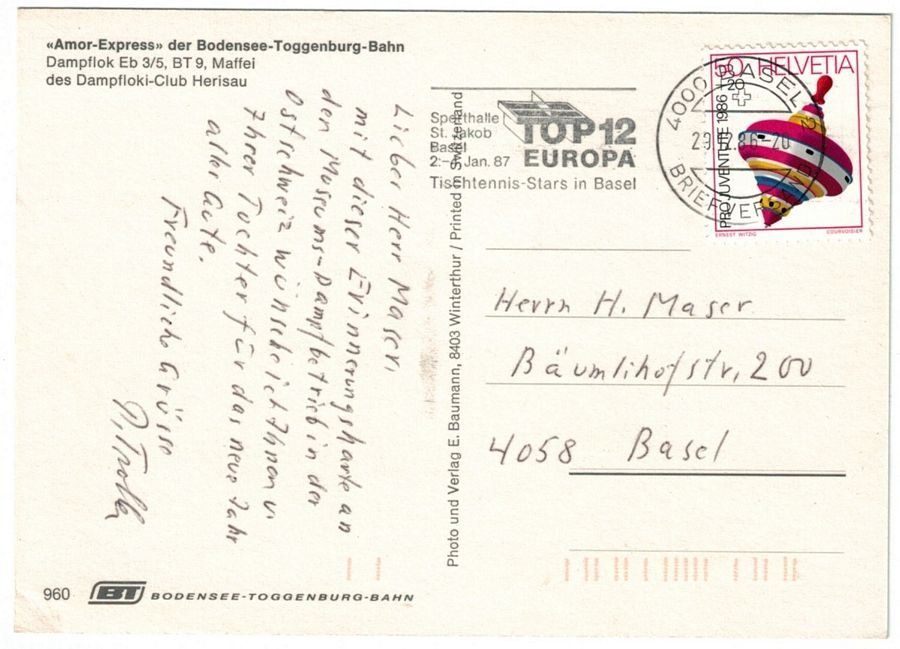 «Amor-Express» der Bodensee-Toggenburg-Bahn
Dampflok Eb 3/5, BT 9, Maffei
des Dampfloki-Club Herisau
Lieber Herr Maser,
mit dieser Erinnerungskarte an
den Museums-Dampfbetrieb in der
Ostschweiz wünsche ich Ihnen u.
Ihrer Tochter für das neue Jahr
alles Gute.
Freundliche Grüsse
960
BT BODENSEE-TOGGENBURG-BAHN
Photo und Verlag E. Baumann, 8403 Winterthur / Printed in Switzerland
Sporthalle
St. Jakob
Basel
2.- Jan. 87
TOP 12
EUROPA
Tischtennis-Stars in Basel
4000 BASEL 2
29.12.86-20
BRIEFVERSAND
50 HELVETIA
+20
PRO JUVENTUTE 1986
ERNST WITZIG
COURVOISIER
Herrn H. Maser
Bäumlihofstr, 200
4058 Basel